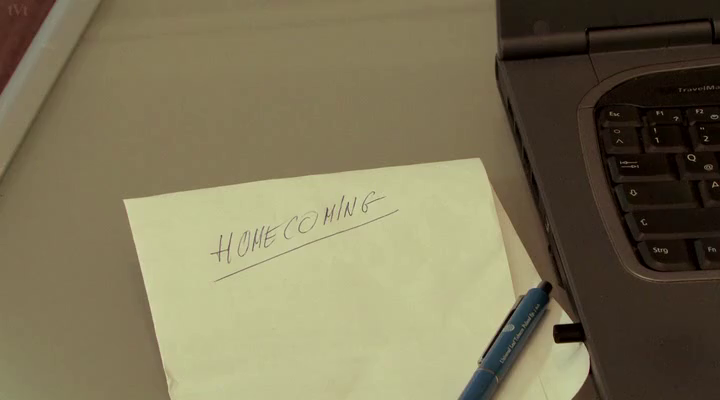 HOMECOMING
TravelMa
Esc
F1
F2
?
!
1
"
2
Q
@
A
Strg
Fn